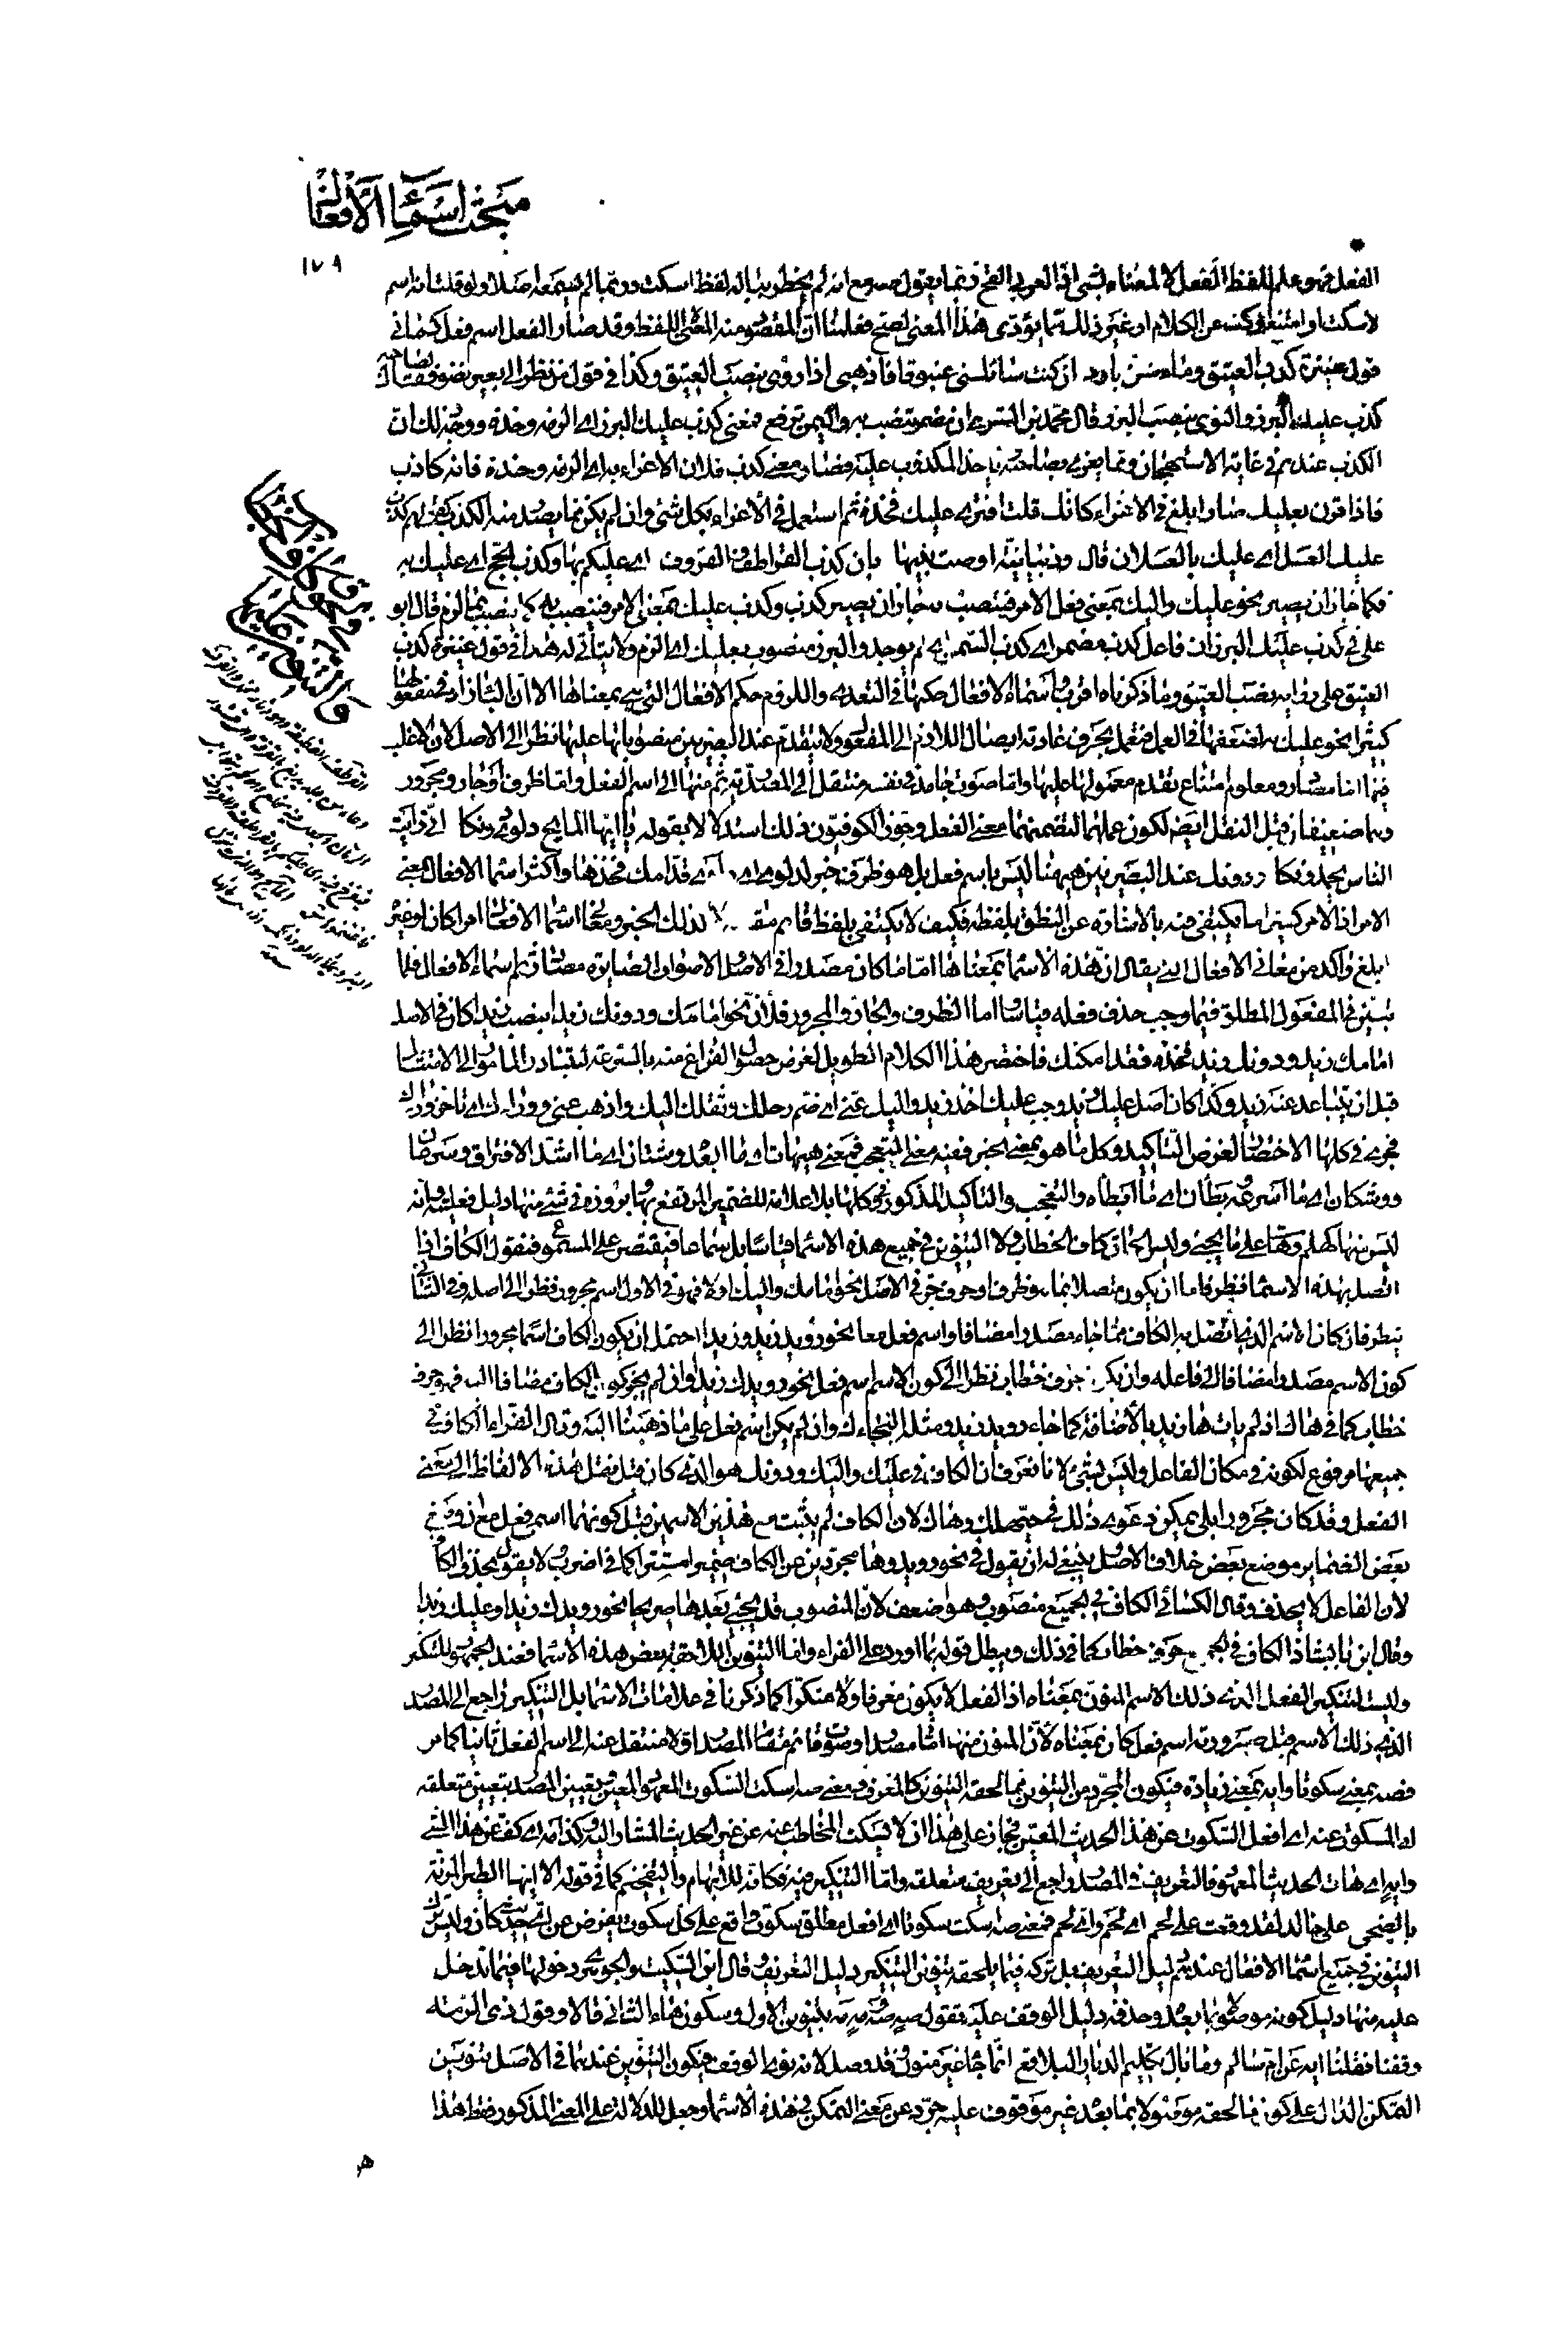 مبحث اسماء الأفعال
١٧٩
الفعل فهو علم للفظ الفعل لا لمعناه بشيء اذ العربي القح ربما يقول صه مع انه لم يخطر بباله لفظ اسكت وربما لم يسمعه اصلا ولو قلت انه اسم
لاسكت او امتنع او كف عن الكلام او غير ذلك مما يؤدي هذا المعنى لصح فعلمنا ان المقصود منه المعنى لا اللفظ وقد صار الفعل اسم فعل كما في
قول عنترة كذب العتيق وماء شن بارد ان كنت سائلتي غبوقا فاذهبي اذا روي بنصب العتيق وكذا في قول من نظر الى بعير نضو فقال لصاحبه
كذب عليك البزر والنوى بنصب البزر وقال محمد بن السري ان مضر تنصب به واليمن ترفع فمعنى كذب عليك البزر اي الزمه وخذه ووجه ذلك ان
الكذب عندهم في غاية الاستهجان ومما يغري بصاحبه ياخذ المكذوب عليه فصار معنى كذب فلان الاغراء به اي الزمه وخذه فانه كاذب
فاذا قرن بعليك صار ابلغ في الاغراء كانك قلت افترى عليك فخذه ثم استعمل في الاغراء بكل شيء وان لم يكن مما يصدر منه الكذب كقولهم كذب
عليك العسل اي عليك بالعسلان قال وذبيانية اوصت بنيها بان كذب القراطف والقروف اي عليكم بها وكذب الحج اي عليك به
فكما جاز ان يصير نحو عليك واليك بمعنى فعل الامر فينصب به جاز ان يصير كذب وكذب عليك بمعنى الامر فينصب به كما ينصب بالزم قال ابو
علي في كذب عليك البزر ان فاعل كذب مضمر اي كذب السمن اي لم يوجد والبزر منصوب بعليك اي الزم ولا يتأتى له هذا في قول عنترة كذب
العتيق على رواية نصب العتيق وما ذكرناه اقرب واسماء الافعال حكمها في التعدي واللزوم حكم الافعال التي هي بمعناها الا ان الباء تزاد في مفعولها
كثيرا نحو عليك به لضعفها في العمل فتعمل بحرف عادته ايصال اللازم الى المفعول ولا يتقدم عند البصريين منصوباتها عليها نظرا الى الاصل لان الاغلب
فيها اما مصادر ومعلوم امتناع تقدم معمولها عليها واما صوت جامد في نفسه منتقل الى المصدرية ثم منها الى اسم الفعل واما ظرف او جار ومجرور
وهما ضعيفان قبل النقل ايضا لكون عملهما لتضمنهما معنى الفعل وجوز الكوفيون ذلك استدلالا بقوله يا ايها المايح دلوي دونكا اني رأيت
الناس يحمدونكا ودونك عند البصريين ههنا ليس باسم فعل بل هو ظرف خبر لدلوي اي دلوي قدامك فخذها واكثر اسماء الافعال بمعنى
الامر اذ الامر كثيرا ما يكتفى فيه بالاشارة عن النطق بلفظه فكيف لا يكتفى بلفظ قائم مقامه ولا كذلك الخبر ومعاني اسماء الافعال امرا كان او غيره
ابلغ وآكد من معاني الافعال التي يقال ان هذه الاسماء بمعناها اما ما كان مصدرا في الاصل والاصوات الصايرة مصادر ثم اسماء الافعال فلما
تبين في المفعول المطلق فيما وجب حذف فعله قياسا واما الظرف والجار والمجرور فلأن نحو امامك ودونك زيدا بنصب زيدا كان في الاصل
امامك زيد ودونك زيد فخذه فقد امكنك فاختصر هذا الكلام الطويل لغرض حصول الفراغ منه بالسرعة ليتبادر المامور الى الامتثال
قبل ان يتباعد عنه زيد وكذا كان اصل عليك زيدا وجب عليك اخذ زيد واليك عني اي ضم رحلك وثقلك اليك واذهب عني ووراءك اي تاخر وراءك
فجرى في كلها الاختصار لغرض التأكيد وكل ما هو بمعنى الخبر ففيه معنى التعجب فمعنى هيهات اي ما ابعد وشتان اي ما اشد الافتراق وسرعان
ووشكان اي ما اسرعه وبطآن اي ما ابطأه والتعجب والتأكيد المذكور في كلها بلا علامة للضمير المرتفع بها وبروزه في شيء منها دليل فعليته وانه
ليس منها كهلم وهات على ما يجيء وليس لحاق كاف الخطاب ولا التنوين في جميع هذه الاسماء قياسا بل سماعا فيقتصر على المسموع فنقول الكاف اذا
اتصل بهذه الاسماء نظر فاما ان يكون متصلا بما هو ظرف او حرف جر في الاصل نحو امامك واليك اولا فهو في الاول اسم مجرور نظرا الى اصله وفي الثاني
ينظر فان كان الاسم الذي اتصل به الكاف مما جاء مصدرا مضافا واسم فعل معا نحو رويد زيد وزيدا احتمل ان يكون الكاف اسما مجرورا نظرا الى
كون الاسم مصدرا مضافا الى فاعله وان يكون حرف خطاب نظرا الى كون الاسم اسم فعل نحو رويدك زيدا وان لم يجز كون الكاف مضافا اليه فهو حرف
خطاب كما في هاك اذ لم يات ها زيد بالاضافة كما جاء رويد زيد ومثله النجاءك وان لم يكن اسم فعل على ما ذهبنا اليه وقال الفراء الكاف في
جميعها مرفوع لكونه في مكان الفاعل وليس بشيء لانا نعرف ان الكاف في عليك واليك ودونك هو الذي كان قبل نقل هذه الالفاظ الى معنى
الفعل وقد كان مجرورا بلى يمكن دعوى ذلك في حيهلك وهاك لان الكاف لم يثبت مع هذين الاسمين قبل كونهما اسمي فعل مع ان وقوع
بعض الضماير موضع بعض خلاف الاصل ينبغي له ان يقول في نحو رويد وها مجردين عن الكاف ضميرا مستترا كما في اضرب ولا يقول بحذف الكاف
لان الفاعل لا يحذف وقال الكسائي الكاف في الجميع منصوب وهو اضعف لان المنصوب قد يجيء بعدها صريحا نحو رويدك زيدا وعليك زيدا
وقال ابن بابشاذ الكاف في الجميع حرف خطاب كما في ذلك ويبطل قوله بما اورد على الفراء واما التنوين اللاحق لبعض هذه الاسماء فعند الجمهور للتنكير
وليست لتنكير الفعل الذي ذلك الاسم المنون بمعناه اذ الفعل لا يكون معرفا ولا منكرا كما ذكرنا في علامات الاسماء بل التنكير راجع الى المصدر
الذي ذلك الاسم قبل صيرورته اسم فعل كان بمعناه لأن المنون منها اما مصدر او صوت قائم مقام المصدر اولا منتقل عنه الى اسم الفعل ثانيا كما مر
فصه بمعنى سكوتا وايه بمعنى زيادة فيكون المجرد من التنوين مما لحقه التنوين كالمعرف فمعنى صه اسكت السكوت المعهود المعين وتعيين المصدر بتعيين متعلقه
اي المسكوت عنه اي افعل السكوت عن هذا الحديث المعين فجاز على هذا ان لا يسكت المخاطب عن غير الحديث المشار اليه وكذا مه اي كف عن هذا الشيء
وايه اي هات الحديث المعهود فالتعريف في المصدر راجع الى تعريف متعلقه واما التنكير فيه فكانه للابهام والتفخيم كما في قوله الا ايها الطير المربة
بالضحى على خالد لقد وقعت على لحم اي لحم واي لحم فمعنى صه اسكت سكوتا اي افعل مطلق سكوت واقع على كل سكوت يفرض عن اي حديث كان وليس ترك
التنوين في جميع اسماء الافعال عندهم دليل التعريف بل تركه فيما يلحقه تنوين التنكير دليل التعريف وقال ابن السكيت والجوهري دخولها فيما تدخل
عليه منها دليل كونه موصولا بما بعد وحذفه دليل الوقف عليه تقول صه صه ومه مه بتنوين الاول وسكون هاء الثاني قالا وقول ذي الرمة
وقفنا فقلنا ايه عن ام سالم وما بال تكليم الديار البلاقع انما جاء غير منون وقد وصل لانه نوى الوقف فيكون التنوين عندهما في الاصل تنوين
التمكن الدال على كون ما لحقه موصولا بما بعد غير موقوف عليه جرد عن معنى التمكن في هذه الاسماء وجعل للدلالة على المعنى المذكور فقط هذا